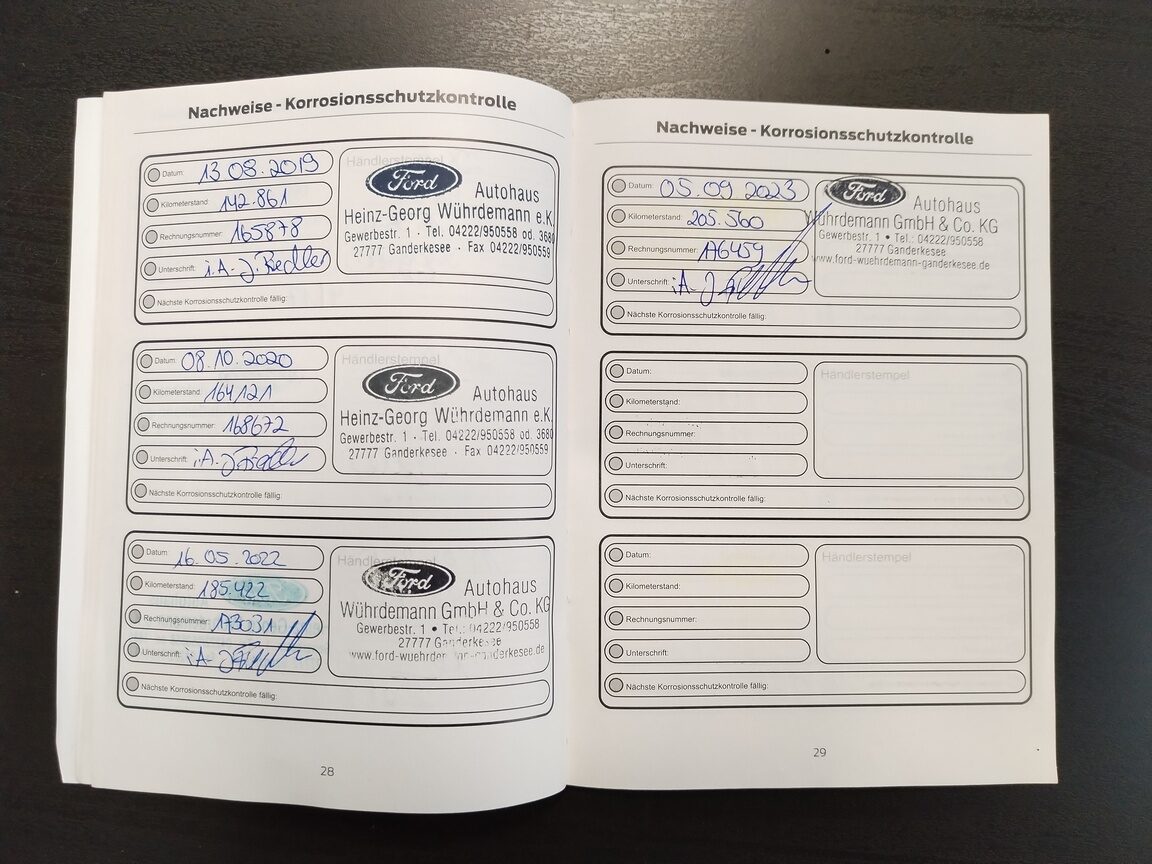 Nachweise - Korrosionsschutzkontrolle
Datum: 13.08.2019
Kilometerstand: 142.861
Rechnungsnummer: 165878
Unterschrift: i.A. J. Riedler
Nächste Korrosionsschutzkontrolle fällig:
Händlerstempel
Ford
Autohaus
Heinz-Georg Wührdemann e.K.
Gewerbestr. 1 · Tel. 04222/950558 od. 3680
27777 Ganderkesee · Fax 04222/950559
Datum: 08.10.2020
Kilometerstand: 164121
Rechnungsnummer: 168672
Unterschrift: i.A.
Nächste Korrosionsschutzkontrolle fällig:
Händlerstempel
Ford
Autohaus
Heinz-Georg Wührdemann e.K.
Gewerbestr. 1 · Tel. 04222/950558 od. 3680
27777 Ganderkesee · Fax 04222/950559
Datum: 16.05.2022
Kilometerstand: 185.422
Rechnungsnummer: 173031
Unterschrift: i.A.
Nächste Korrosionsschutzkontrolle fällig:
Händlerstempel
Ford
Autohaus
Wührdemann GmbH & Co. KG
Gewerbestr. 1 • Tel.: 04222/950558
27777 Ganderkesee
www.ford-wuehrdemann-ganderkesee.de
28
Nachweise - Korrosionsschutzkontrolle
Datum: 05.09.2023
Kilometerstand: 205.560
Rechnungsnummer: 176459
Unterschrift: i.A.
Nächste Korrosionsschutzkontrolle fällig:
Ford
Autohaus
Wührdemann GmbH & Co. KG
Gewerbestr. 1 • Tel.: 04222/950558
27777 Ganderkesee
www.ford-wuehrdemann-ganderkesee.de
Datum:
Kilometerstand:
Rechnungsnummer:
Unterschrift:
Nächste Korrosionsschutzkontrolle fällig:
Händlerstempel
Datum:
Kilometerstand:
Rechnungsnummer:
Unterschrift:
Nächste Korrosionsschutzkontrolle fällig:
Händlerstempel
29